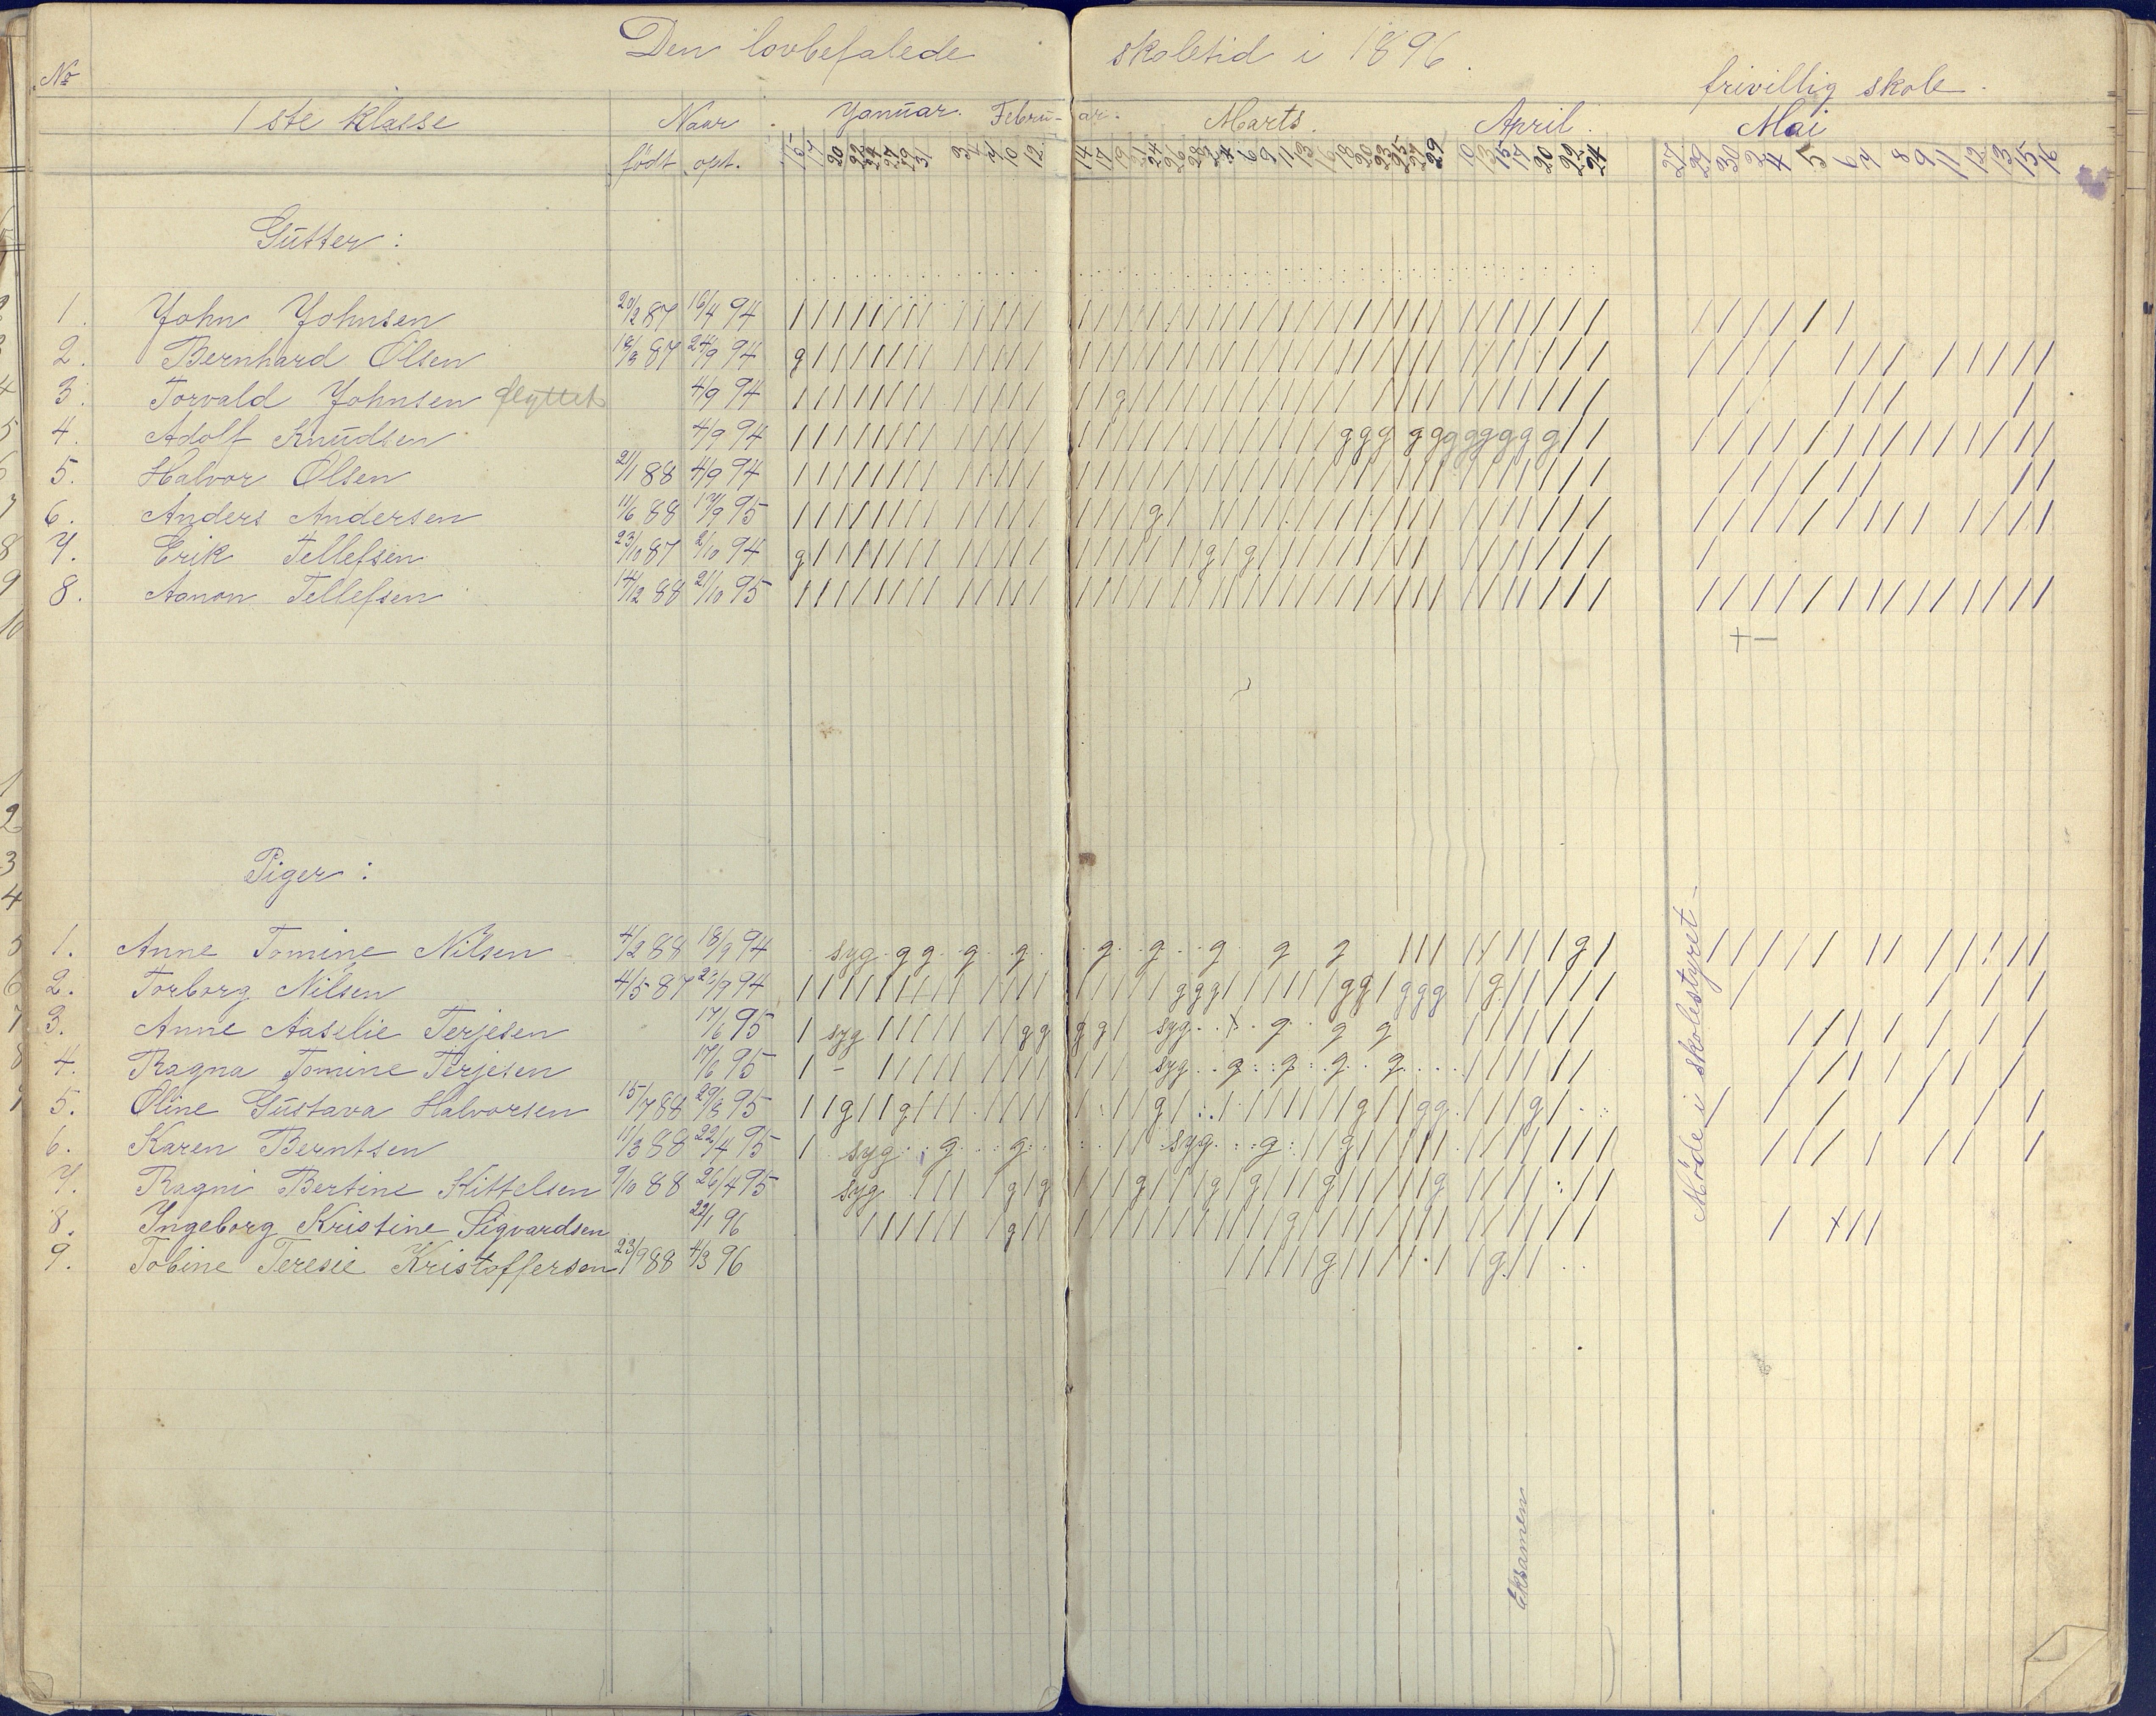 Den lovbefalede skoletid i 1896.
frivillig skole.
No
1ste klasse
Naar
Januar.
Februar.
Marts.
April.
Mai
født
opt.
15 17 20 22 24 27 29 31 3 4 7 10 12 14 17 19 21 24 26 28
4 6 9 11 13 16 18 20 23 25 27 29
10 13 15 17 20 22 24
27 29 30 2 4 5 6 7 8 9 11 12 13 15 16
Gutter:
1. John Johnsen 20/2 87 16/4 94
2. Bernhard Olsen 87 24/9 94 g
3. Torvald Johnsen flyttet 4/9 94 g
4. Adolf Knudsen 4/9 94 g g g g g g g g g g g g
5. Halvor Olsen 2/1 88 4/9 94
6. Anders Andersen 11/6 88 17/9 95 g
7. Erik Tellefsen 23/10 87 2/10 94 g g g
8. Aanon Tellefsen 14/12 88 21/10 95
+ —
Piger:
1. Anne Tomine Nilsen 4/2 88 18/9 94 syg g g g g g g g g g g
2. Torborg Nilsen 4/5 87 94 g g g g g g g g g
3. Anne Aaselie Terjesen 17/6 95 syg g g g g syg g g g
4. Ragna Tomine Terjesen 17/6 95 syg g g g g
5. Oline Gustava Halvorsen 15/7 88 29/3 95 g g g g g g g
6. Karen Berntsen 11/3 88 22/4 95 syg g g syg g g
7. Ragni Bertine Kittelsen 9/10 88 26/4 95 syg g g g g g g g
8. Ingeborg Kristine Sigvardsen 22/1 96 g g
9. Tobine Teresie Kristoffersen 23/9 88 4/3 96 g g
Møde i skolestyret
Eksamen